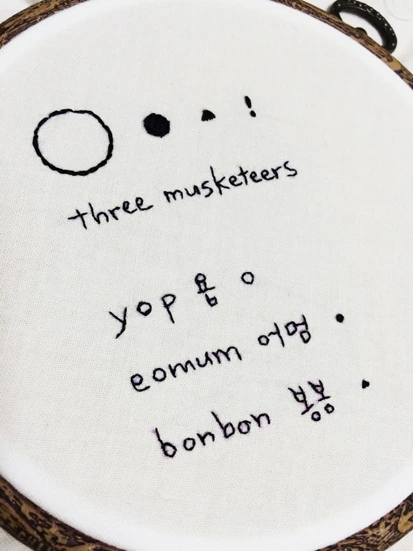 three musketeers
yop 욥
eomum 어멈
bonbon 봉봉